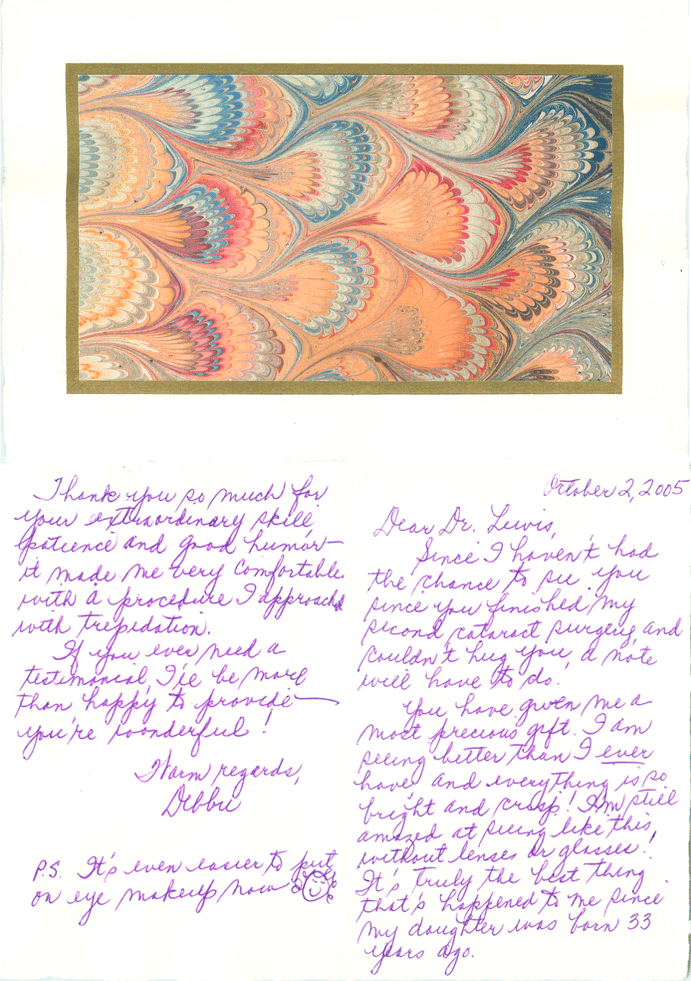 October 2, 2005
Dear Dr. Lewis,
Since I haven't had
the chance to see you
since you finished my
second cataract surgery, and
couldn't hug you, a note
will have to do.
You have given me a
most precious gift. I am
seeing better than I ever
have and everything is so
bright and crisp! I'm still
amazed at seeing like this,
without lenses or glasses!
It's truly the best thing
that's happened to me since
my daughter was born 33
years ago.
Thank you so much for
your extraordinary skill,
patience and good humor—
it made me very comfortable
with a procedure I approached
with trepidation.
If you ever need a
testimonial, I'll be more
than happy to provide—
you're wonderful!
Warm regards,
Debbie
P.S. It's even easier to put
on eye makeup now